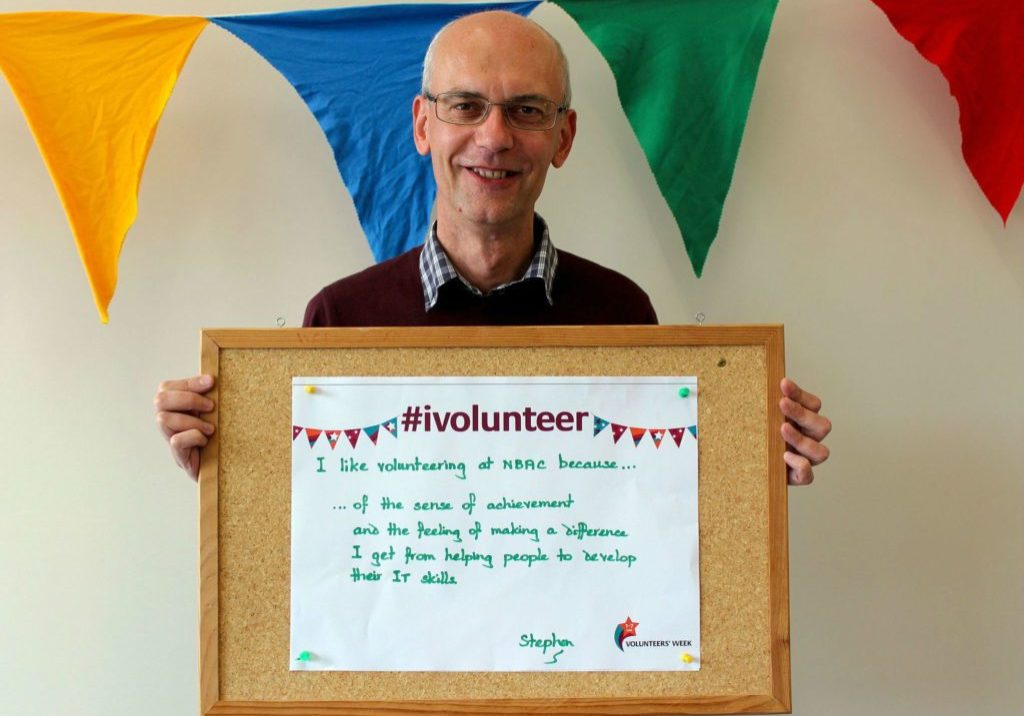 #ivolunteer
I like volunteering at NBAC because...
... of the sense of achievement
and the feeling of making a difference
I get from helping people to develop
their IT skills
Stephen
VOLUNTEERS' WEEK